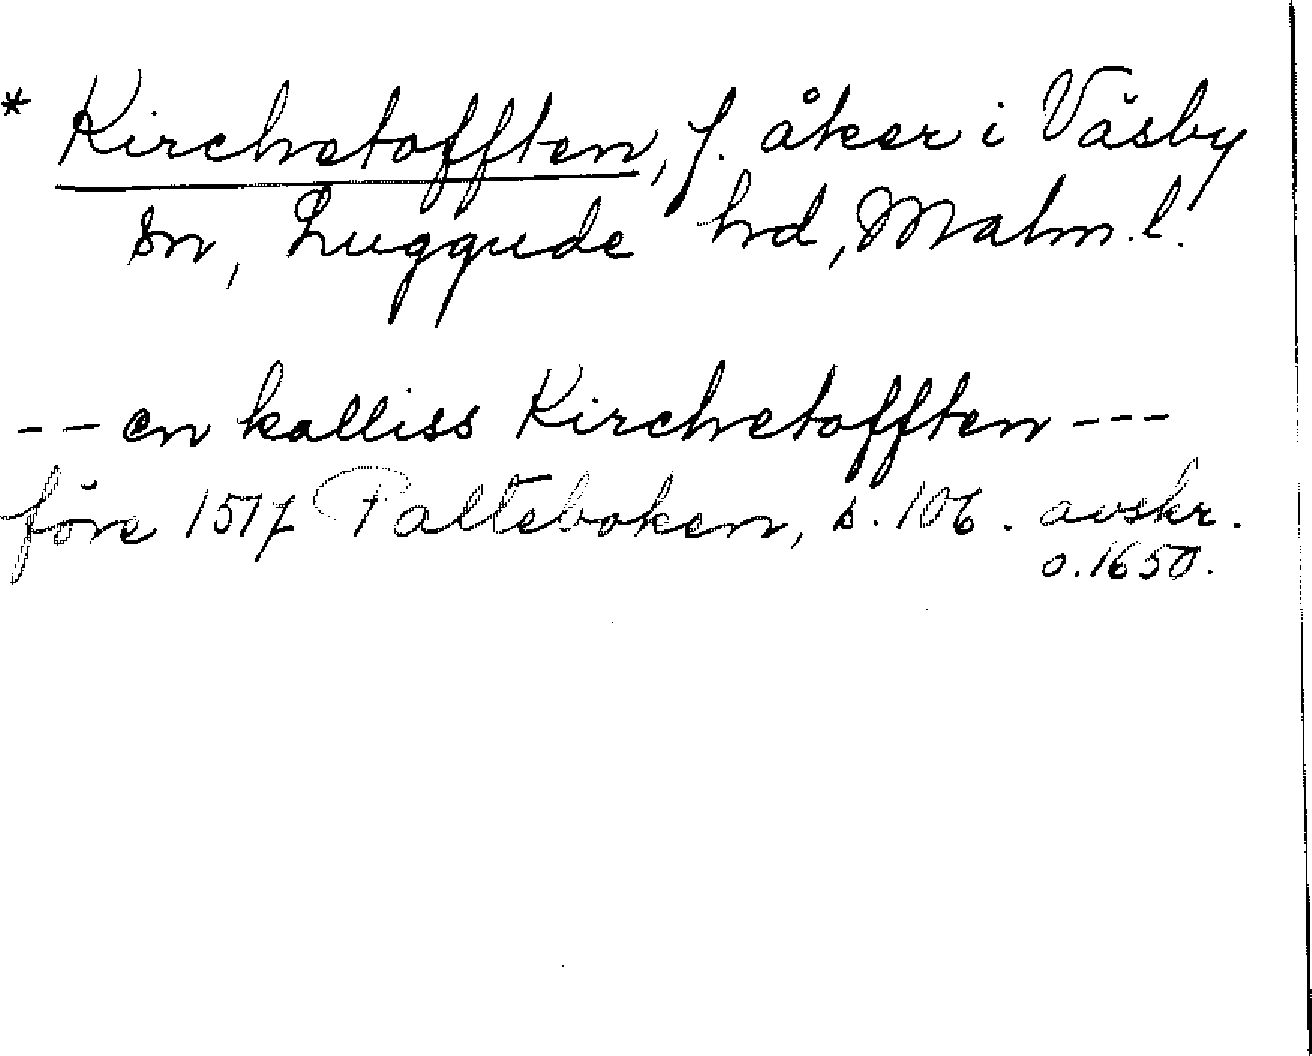 * Kirchetofften, f. åker i Väsby
sn, Luggude hd, Malm. l.
-- en kalliss Kirchetofften ---
före 1517 Palteboken, s. 106. avskr.
o. 1650.